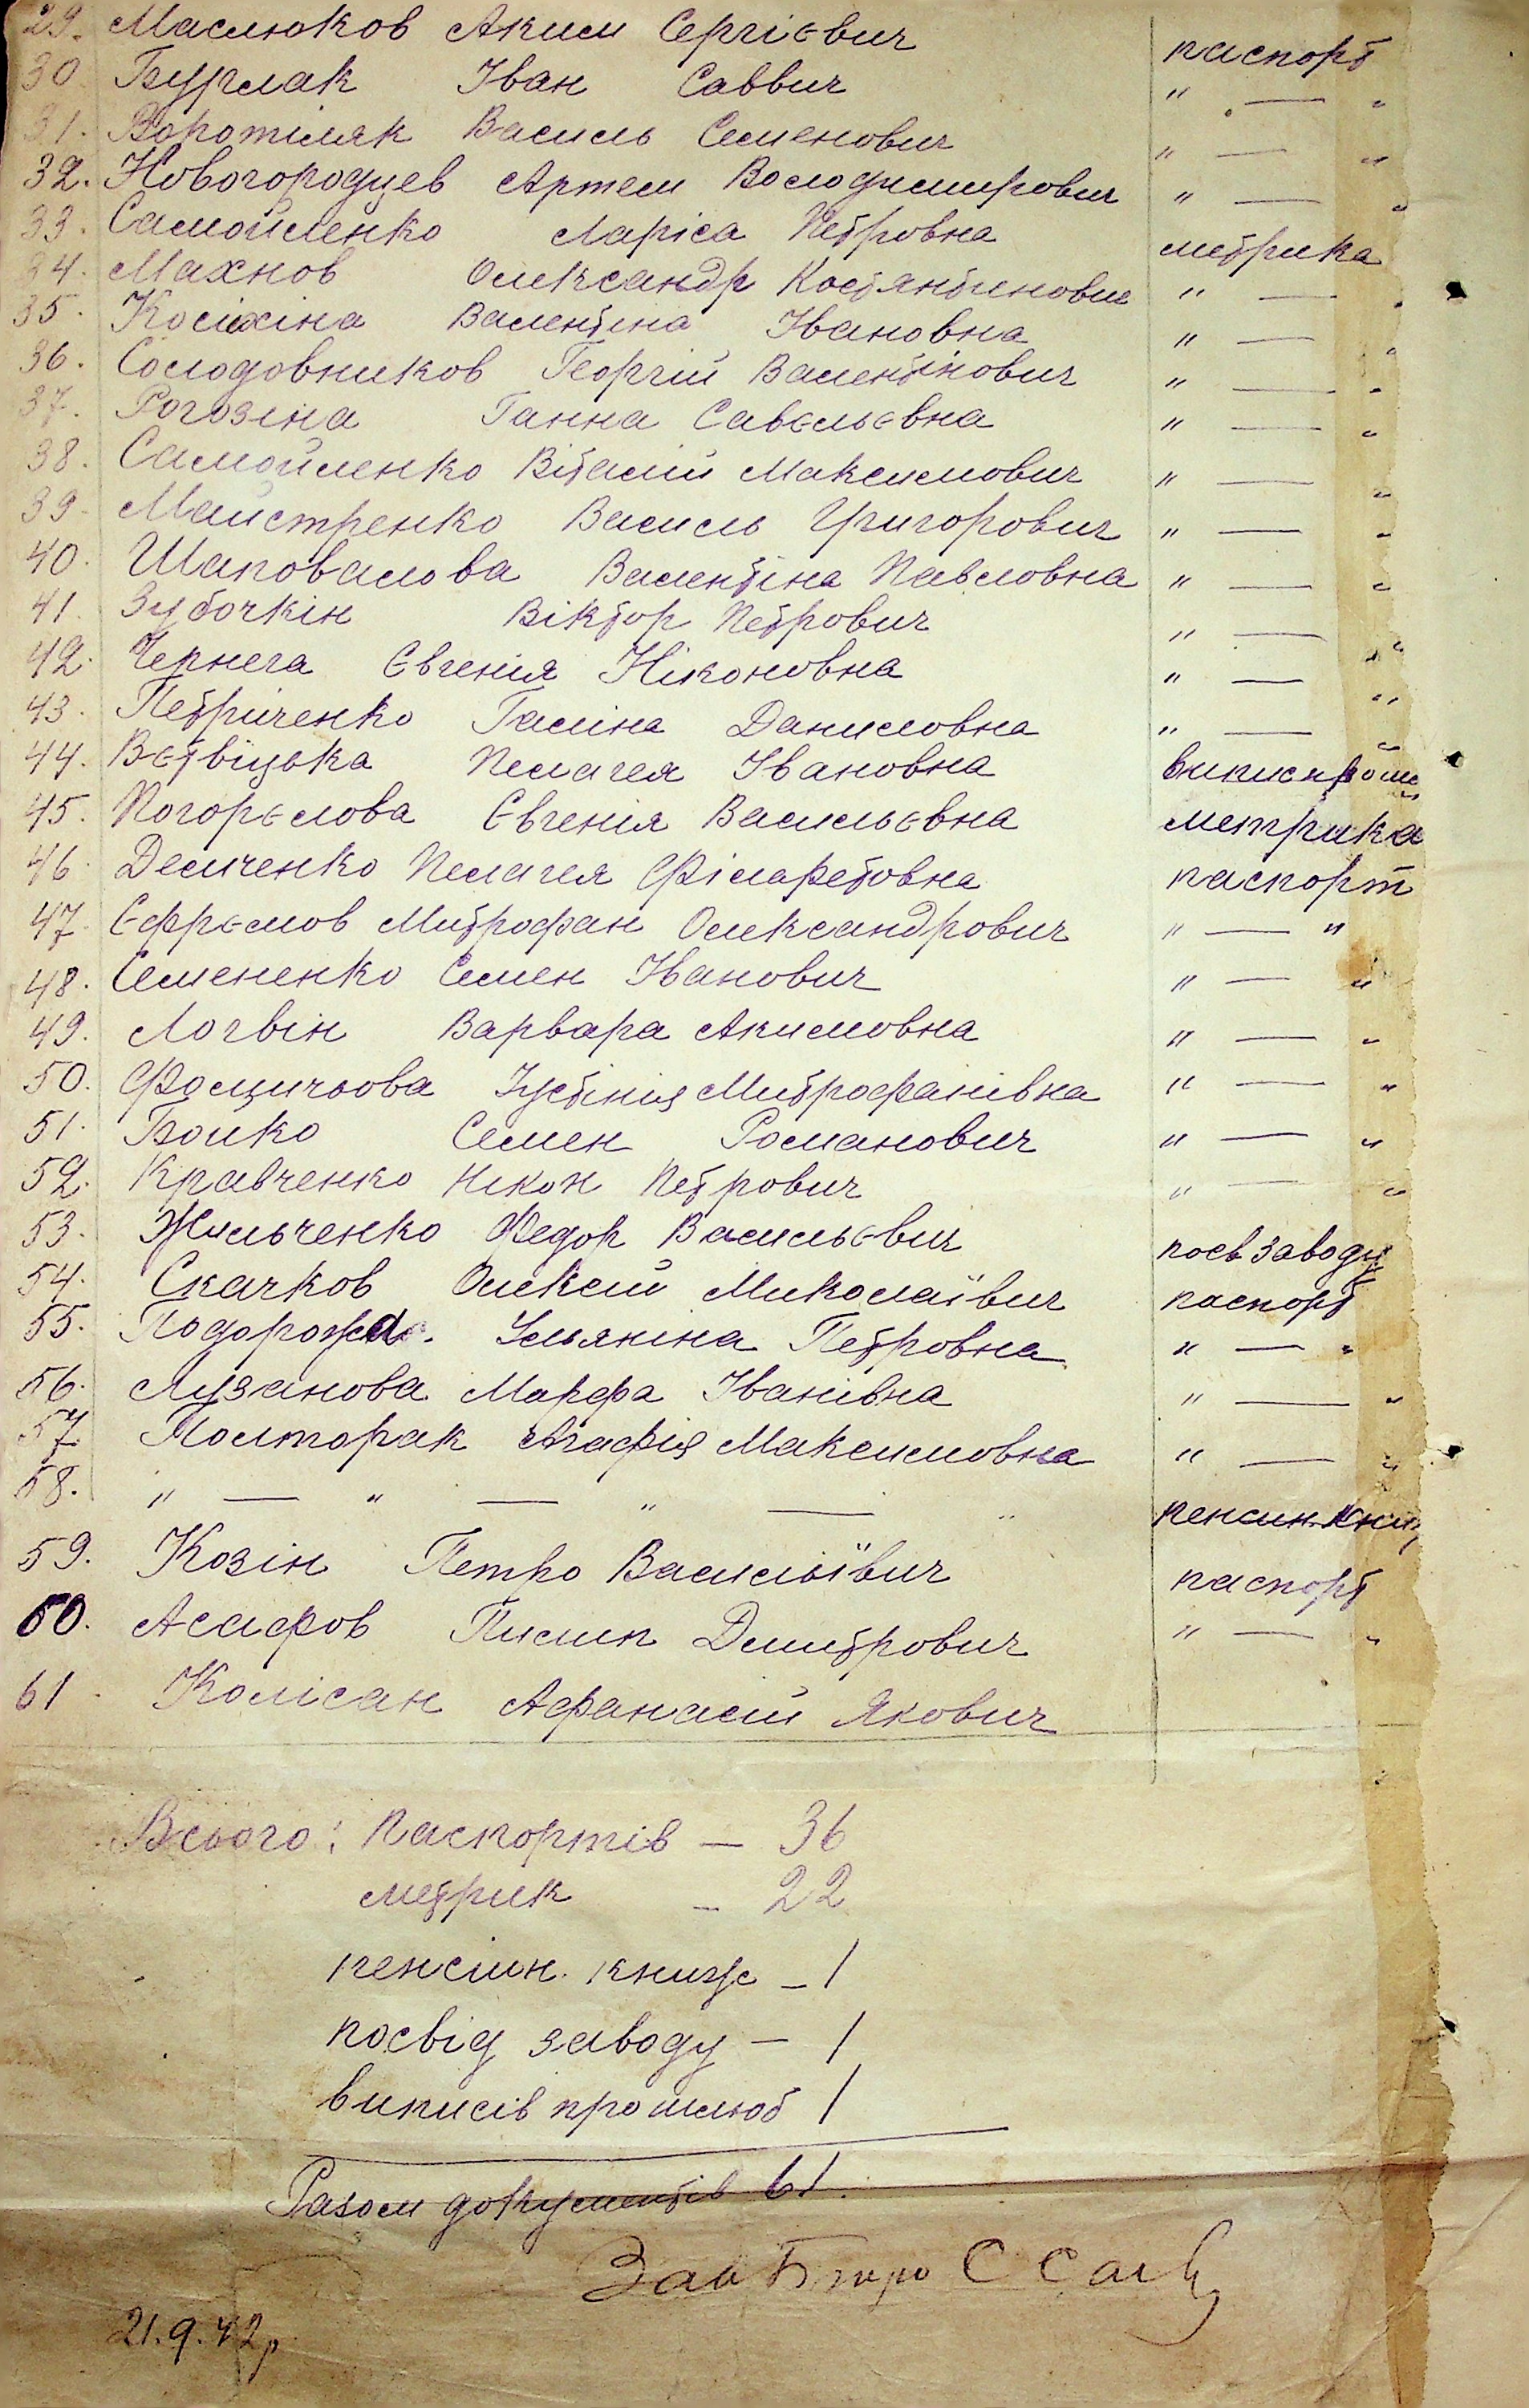 29. Маслюков Аким Сергієвич паспорт
30 Бурлак Іван Саввич " — "
31. Воротиляк Василь Семенович " — "
32. Новогородцев Артем Володимирович " — "
33. Самойленко Ларіса Петровна метрика
34. Махнов Олександр Костянтинович " — "
35. Косихіна Валентина Івановна " — "
36. Солодовников Георгій Валентінович " — "
37. Рогозіна Ганна Савєльєвна " — "
38. Самойленко Віталій Максимович " — "
39. Майстренко Василь Григорович " — "
40. Шаповалова Валентіна Павловна " — "
41. Зубочкін Віктор Петрович " — "
42. Чернега Євгенія Ніконовна " — "
43. Петриченко Галіна Даниловна " — "
44. Вєтвіцька Пелагея Івановна
45. Погорєлова Євгенія Васильєвна метрика
46. Демченко Пелагея Філаретовна паспорт
47. Єфрємов Митрофан Олександрович " — "
48. Семененко Семен Іванович " — "
49. Логвін Варвара Акимовна " — "
50. Фомичьова Устінія Митрофанівна " — "
51. Бойко Семен Романович " — "
52. Кравченко Нікон Петрович " — "
53. Жильченко Федор Васильєвич посв заводу
54. Скачков Олексій Миколаївич паспорт
55. Подорожа. Ульяніна Петровна " — "
56. Лузанова Марфа Іванівна " — "
57. Полторак Агафія Максимовна " — "
58. " — " — " — " пенсин. книж
59. Козін Петро Васильївич паспорт
60. Асафов Пилип Дмитрович " — "
61. Колісан Афанасій Якович
Всього: паспортів — 36
метрик — 22
пенсійн. книж — 1
посвід заводу — 1
виписів про шлюб 1
Разом документів 61.
Зав Бюро
21.9.42р